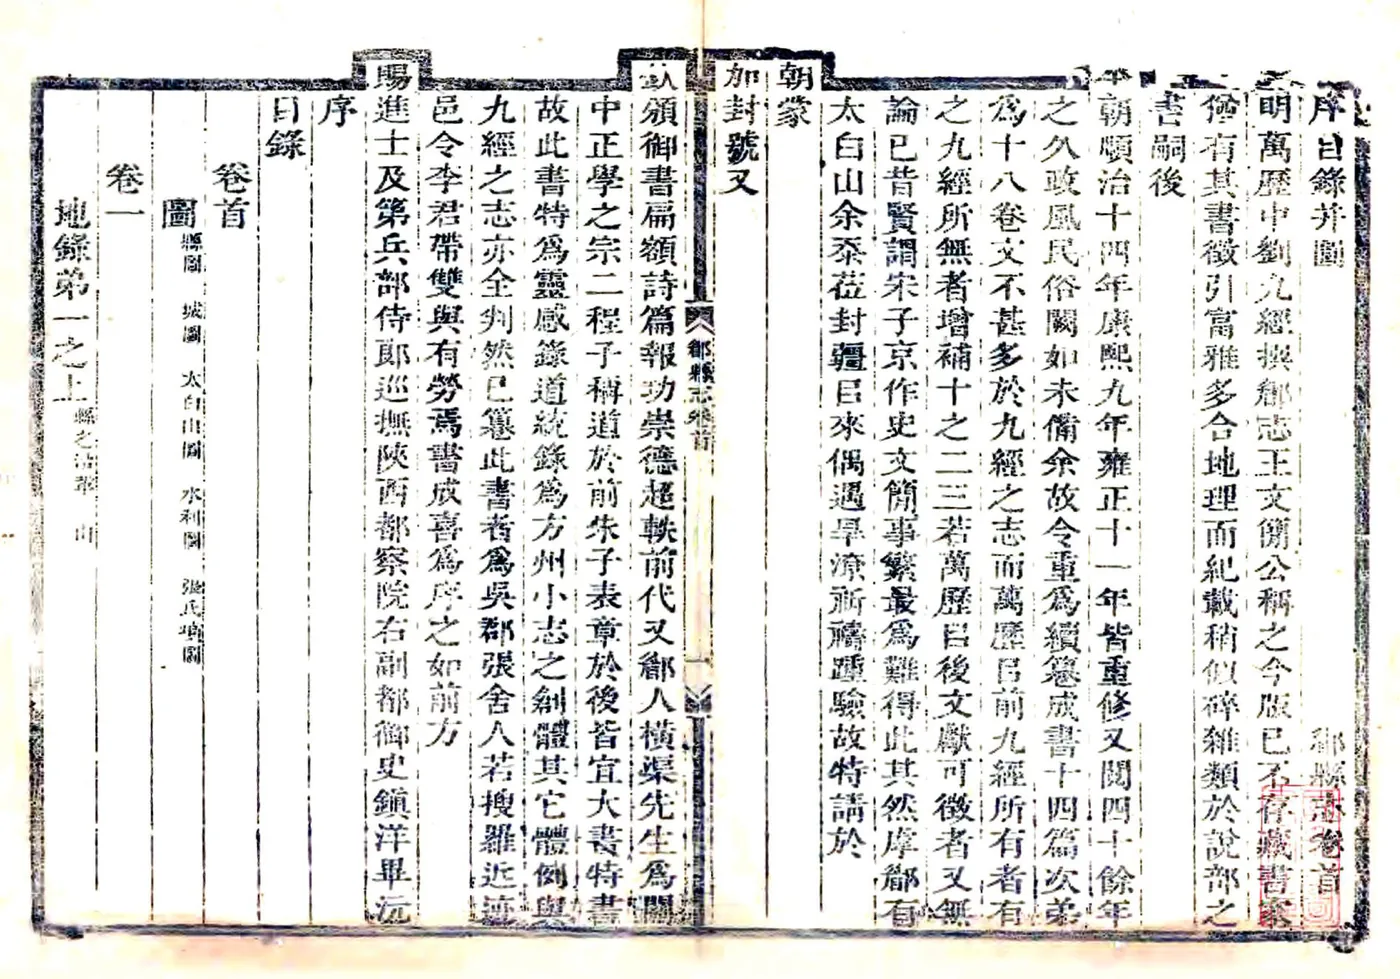 序目錄幷圖 郿縣志卷首
明萬歷中劉九經撰郿志王文簡公稱之今版已不存藏書家
猶有其書徵引富雅多合地理而紀載稍似碎雜類於說部之
書嗣後
朝順治十四年康熙九年雍正十一年皆重修又閱四十餘年
之久政風民俗闕如未備余故令重爲續纂成書十四篇次弟
爲十八卷文不甚多於九經之志而萬歷㠯前九經所有者有
之九經所無者增補十之二三若萬歷㠯後文獻可徵者又無
論已昔賢謂宋子京作史文簡事繁最爲難得此其然庠郿有
太白山余忝莅封疆㠯來偶遇旱潦祈禱踵驗故特請於
朝蒙
加封號又
頒御書扁額詩篇報功崇德超軼前代又郿人橫渠先生爲關
中正學之宗二程子稱道於前朱子表章於後皆宜大書特書
故此書特爲靈感錄道統錄爲方州小志之創體其它體例與
九經之志亦全判然已纂此書者爲吳郡張舍人若搜羅近迹
邑令李君帶雙與有勞焉書成喜爲序之如前方
賜進士及第兵部侍郎巡撫陝西都察院右副都御史鎭洋畢沅
序
目錄
卷首
圖 縣圖 城圖 太白山圖 水利圖 張氏墳圖
卷一
地錄弟一之上 縣之沿革 山
郿縣志卷首
一